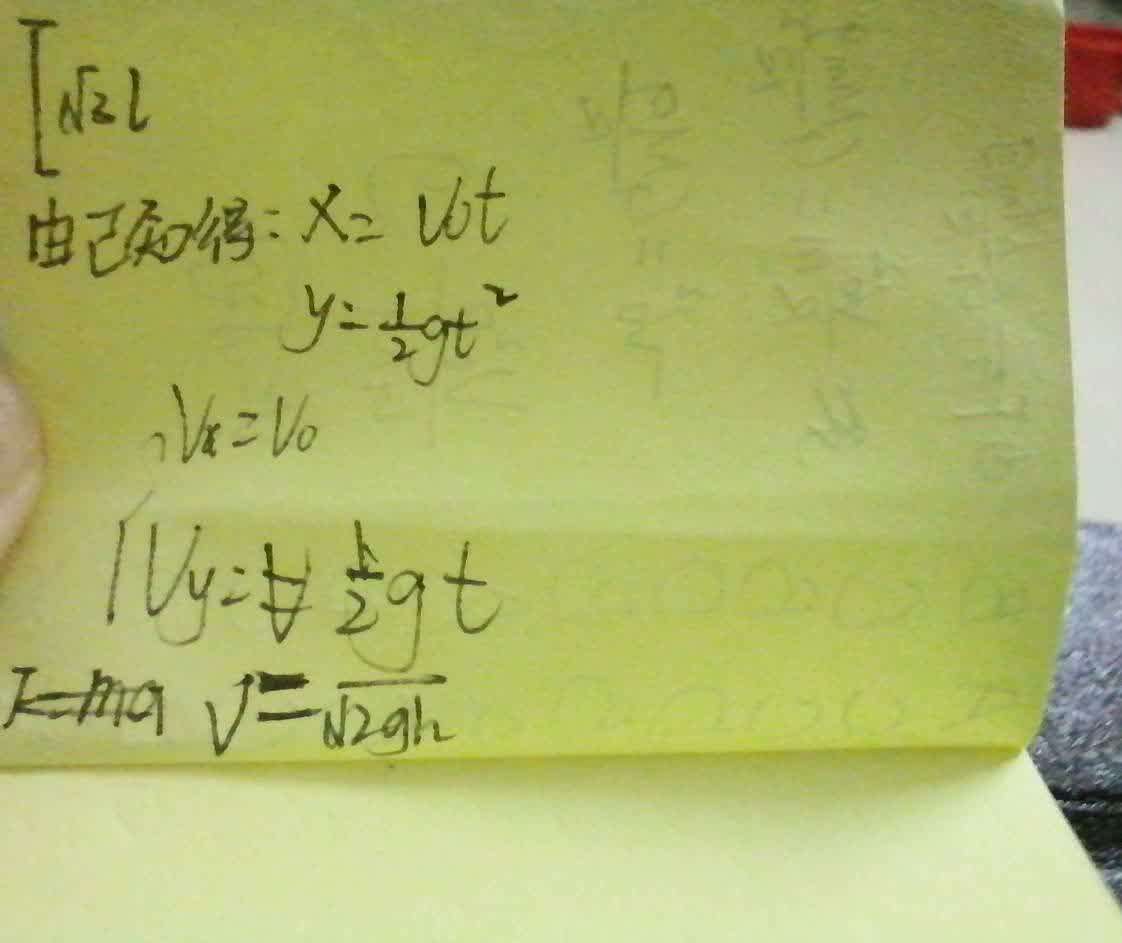 √2l
由已知得: x = V₀t
y = ½gt²
Vx = V₀
Vy = ½gt
F=ma V = √2gh